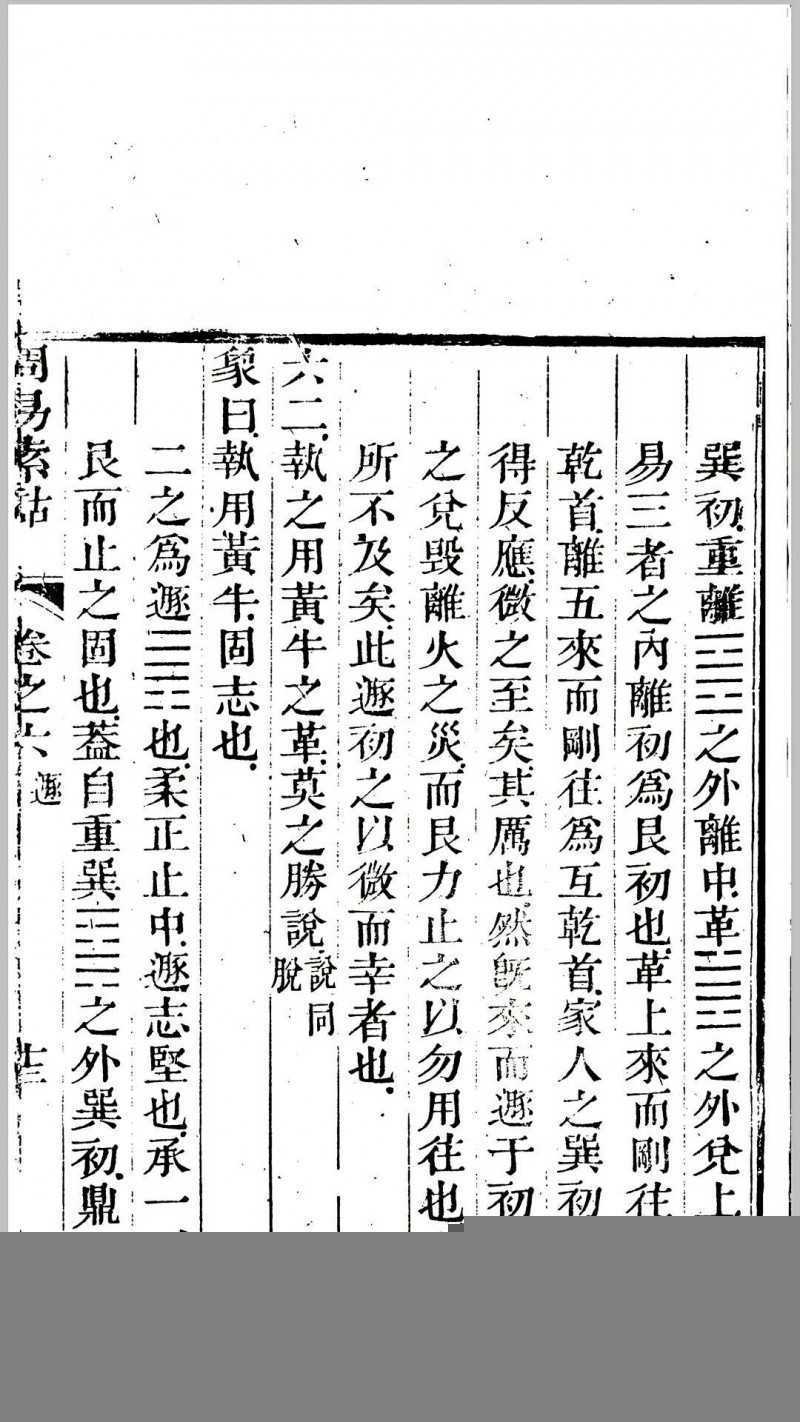 巽初重離䷝之外離中革䷰之外兌上
易三者之內離初爲艮初也革上來而剛往
乾首離五來而剛往爲互乾首家人之巽初
得反應微之至矣其厲也然旣來而遯于初
之兌毀離火之災而艮力止之以勿用往也
所不及矣此遯初之以微而幸者也
六二執之用黃牛之革莫之勝說說同脫
象曰執用黃牛固志也
二之爲遯䷠也柔正止中遯志堅也承一
艮而止之固也蓋自重巽䷸之外巽初鼎
周易索詁 卷之六 遯 十三